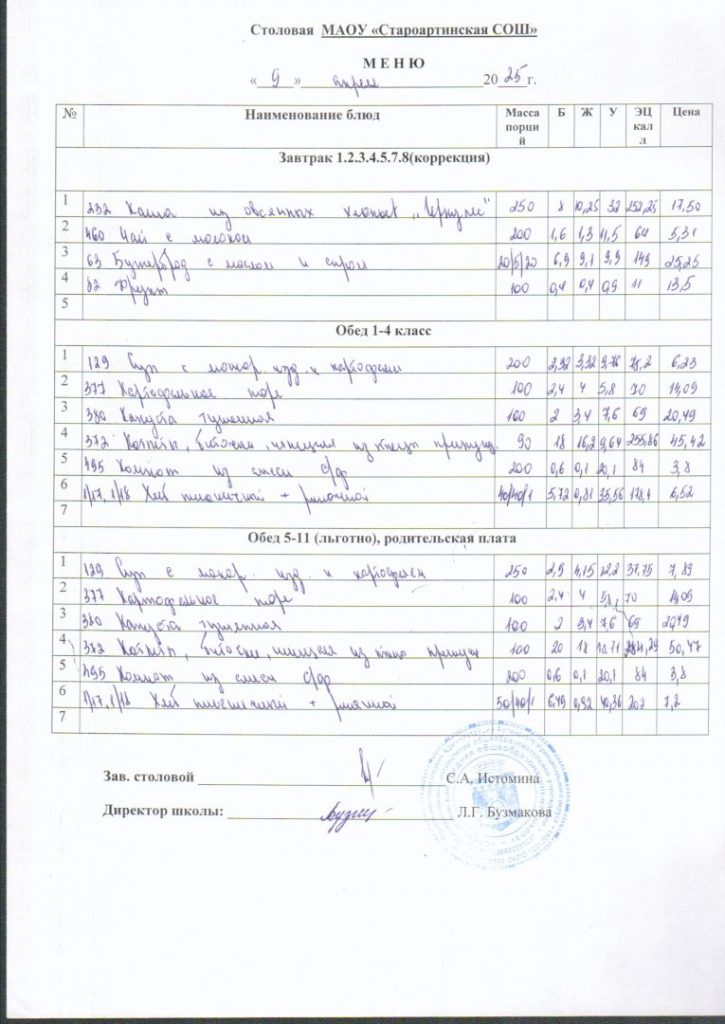 Столовая МАОУ «Староартинская СОШ»
М Е Н Ю
« 9 » апреля 2025 г.
№ Наименование блюд Масса порций Б Ж У ЭЦ калл Цена
Завтрак 1.2.3.4.5.7.8(коррекция)
1 232 Каша из овсяных хлопьев „Геркулес" 250 8 10,25 32 252,25 17,50
2 460 Чай с молоком 200 1,6 1,3 11,5 64 5,31
3 63 Бутерброд с маслом и сыром 20/5/20 6,9 9,1 9,9 149 25,25
4 82 Фрукт 100 0,4 0,4 0,9 11 13,5
5
Обед 1-4 класс
1 129 Суп с макар. изд. и картофелем 200 2,32 3,32 9,76 75,2 6,23
2 377 Картофельное пюре 100 2,4 4 5,8 70 14,09
3 380 Капуста тушенная 100 2 3,4 7,6 69 20,49
4 372 Котлеты, биточки, шницеля из птицы припущ. 90 18 16,2 9,64 255,86 45,42
5 495 Компот из смеси с/ф 200 0,6 0,1 20,1 84 3,8
6 1/17, 1/18 Хлеб пшеничный + ржаной 40/40/1 5,72 0,81 35,56 178,4 6,52
7
Обед 5-11 (льготно), родительская плата
1 129 Суп с макар. изд. и картофелем 250 2,9 4,15 12,2 37,75 7,89
2 377 Картофельное пюре 100 2,4 4 5,8 70 14,09
3 380 Капуста тушенная 100 2 3,4 7,6 69 20,49
4 372 Котлеты, биточки, шницеля из птицы припущ 100 20 18 10,71 284,29 50,47
5 495 Компот из смеси с/ф 200 0,6 0,1 20,1 84 3,8
6 1/17, 1/18 Хлеб пшеничный + ржаной 50/40/1 6,49 0,92 40,36 202 7,2
7
Зав. столовой С.А. Истомина
Директор школы: Л.Г. Бузмакова